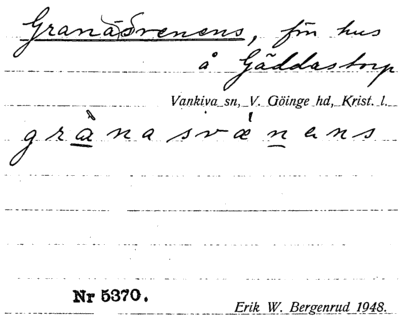 Granåsvenens, för hus
å Gäddastorp
Vankiva sn, V. Göinge hd, Krist. l.
grànasvǽnens
Nr 5370.
Erik W. Bergenrud 1948.